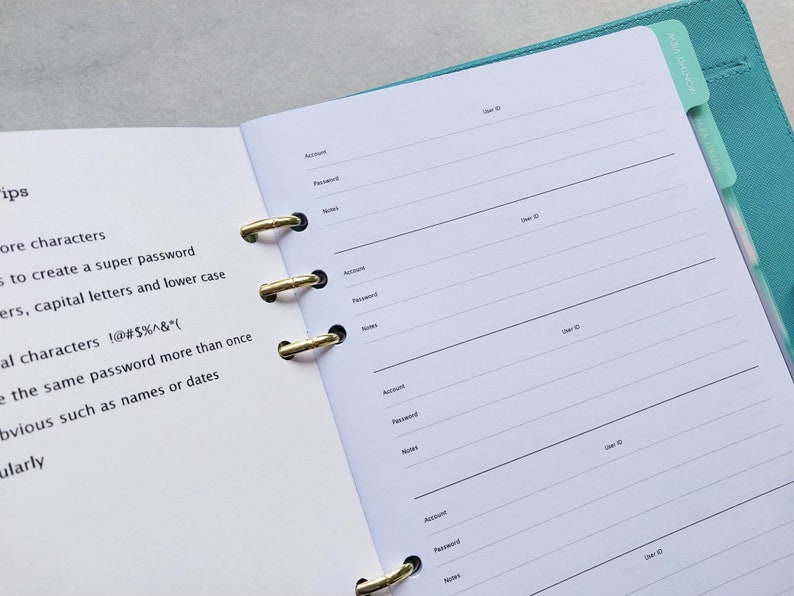 Tips
ore characters
s to create a super password
ers, capital letters and lower case
al characters !@#$%^&*(
e the same password more than once
bvious such as names or dates
ularly
Account User ID
Password
Notes
Account User ID
Password
Notes
Account User ID
Password
Notes
Account User ID
Password
Notes
User ID
MONTHLY VIEW
WEEKLY VIEW